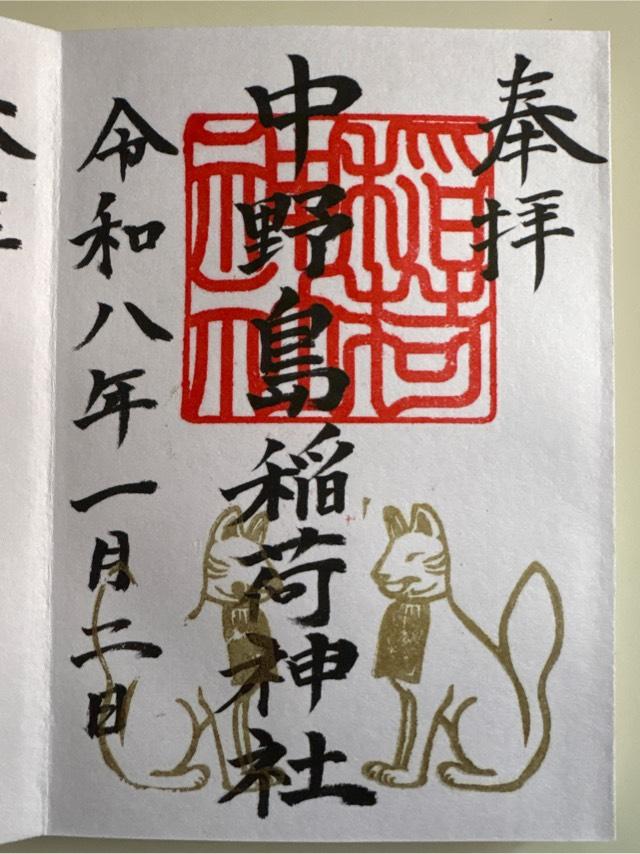 奉拝
稲荷
神社
中野島稲荷神社
令和八年一月二日